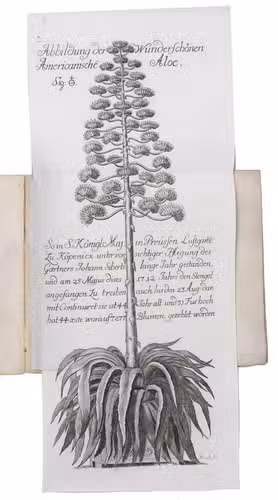 Abbildung der Wunderschönen
Americanische Aloe.
Fig. E.
So in S. Königl. Maj. in Preussen Luftgarte
Zu Köpenick unter vorsichtiger Pflegung des
Gärtners Johann lange Jahr gestanden,
und am 25 Majus dieses 1712 Jahrs den Stengel
angefangen Zu treiben auch bis den 23 Aug. dar
mit Continuiret sie ist 44 Jahr alt und 31 Fus hoch
hat 44 æste worauf Blumen gezehlt worden